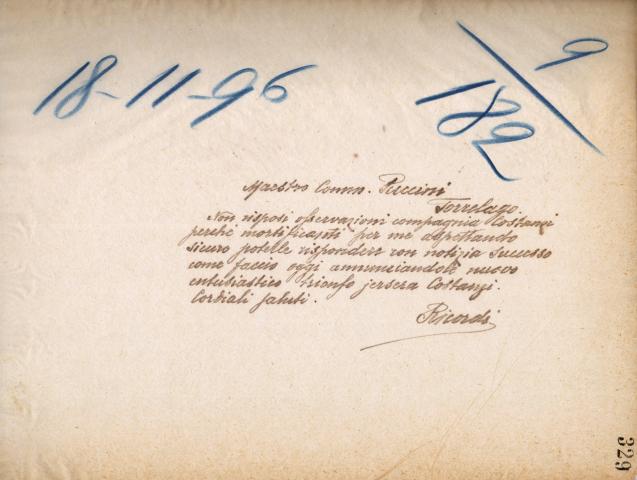 18-11-96
9
182
Maestro Comm. Puccini
Torrelago.
Non risposi osservazioni compagnia Costanzi
perchè mortificanti per me aspettando
sicuro poterle rispondere con notizia successo
come faccio oggi annunciandole nuovo
entusiastico trionfo jersera Costanzi.
Cordiali saluti.
Ricordi
329